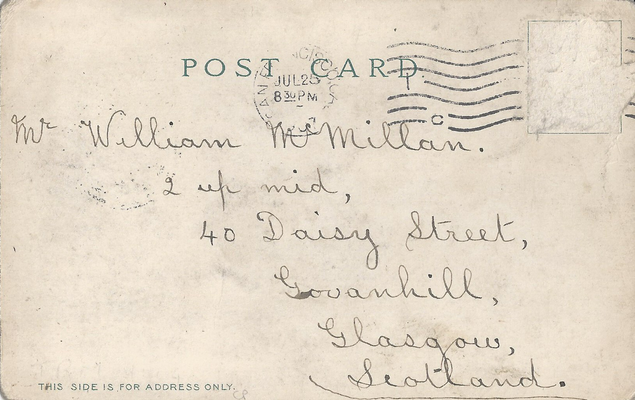 POST CARD
JUL 25
8 30 PM
C
Mr William McMillan.
2 up mid,
40 Daisy Street,
Govanhill,
Glasgow,
Scotland.
THIS SIDE IS FOR ADDRESS ONLY.